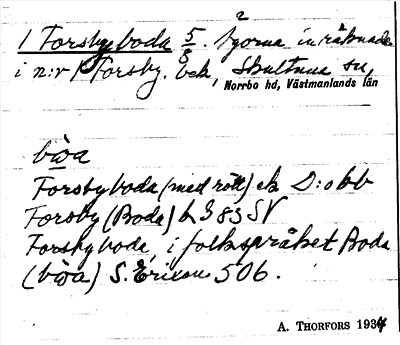 1 Forsbyboda 5/8. Ägorna inräknade
i n:r 1 Forsby. bek, Skultuna sn,
Norrbo hd, Västmanlands län
bòa
Forsbyboda (med rött) ek D:o bb
Forsby (Boda) b 383 SV
Forsbyboda, i folkspråket Boda
(bòa) S. Erixon 506.
A. THORFORS 1934